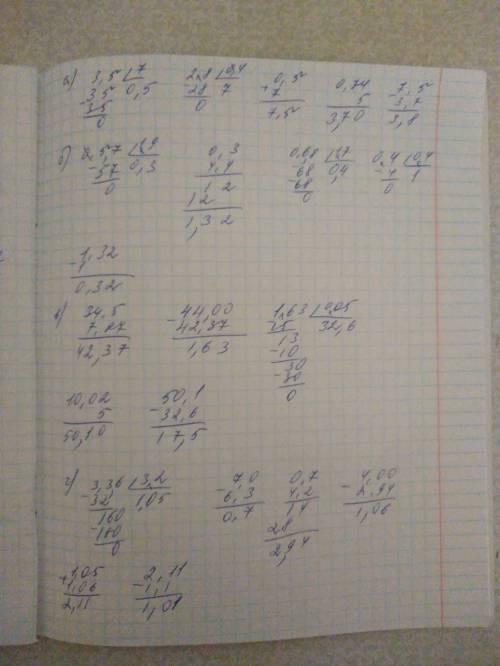 а) 3,5 7 2,8 0,4 0,5 0,74 7,5
- 35 0,5 - 28 7 + 7 5 - 3,7
35 0 7,5 3,70 3,8
0
б) 0,57 1,9 0,3 0,68 1,7 0,4 0,4
- 57 0,3 4,4 - 68 0,4 - 4 1
0 1 2 68 0
12 0
1,32
- 1,32
1
0,32
в) 34,5 - 44,00 1,63 0,05
7,87 42,37 15 32,6
42,37 1,63 13
- 10
30
- 30
0
10,02 50,1
5 - 32,6
50,10 17,5
г) 3,36 3,2 - 7,0 0,7 - 4,00
- 32 1,05 6,3 4,2 2,94
160 0,7 14 1,06
- 160 28
0 2,94
+ 1,05 2,11
1,06 - 1,1
2,11 1,01